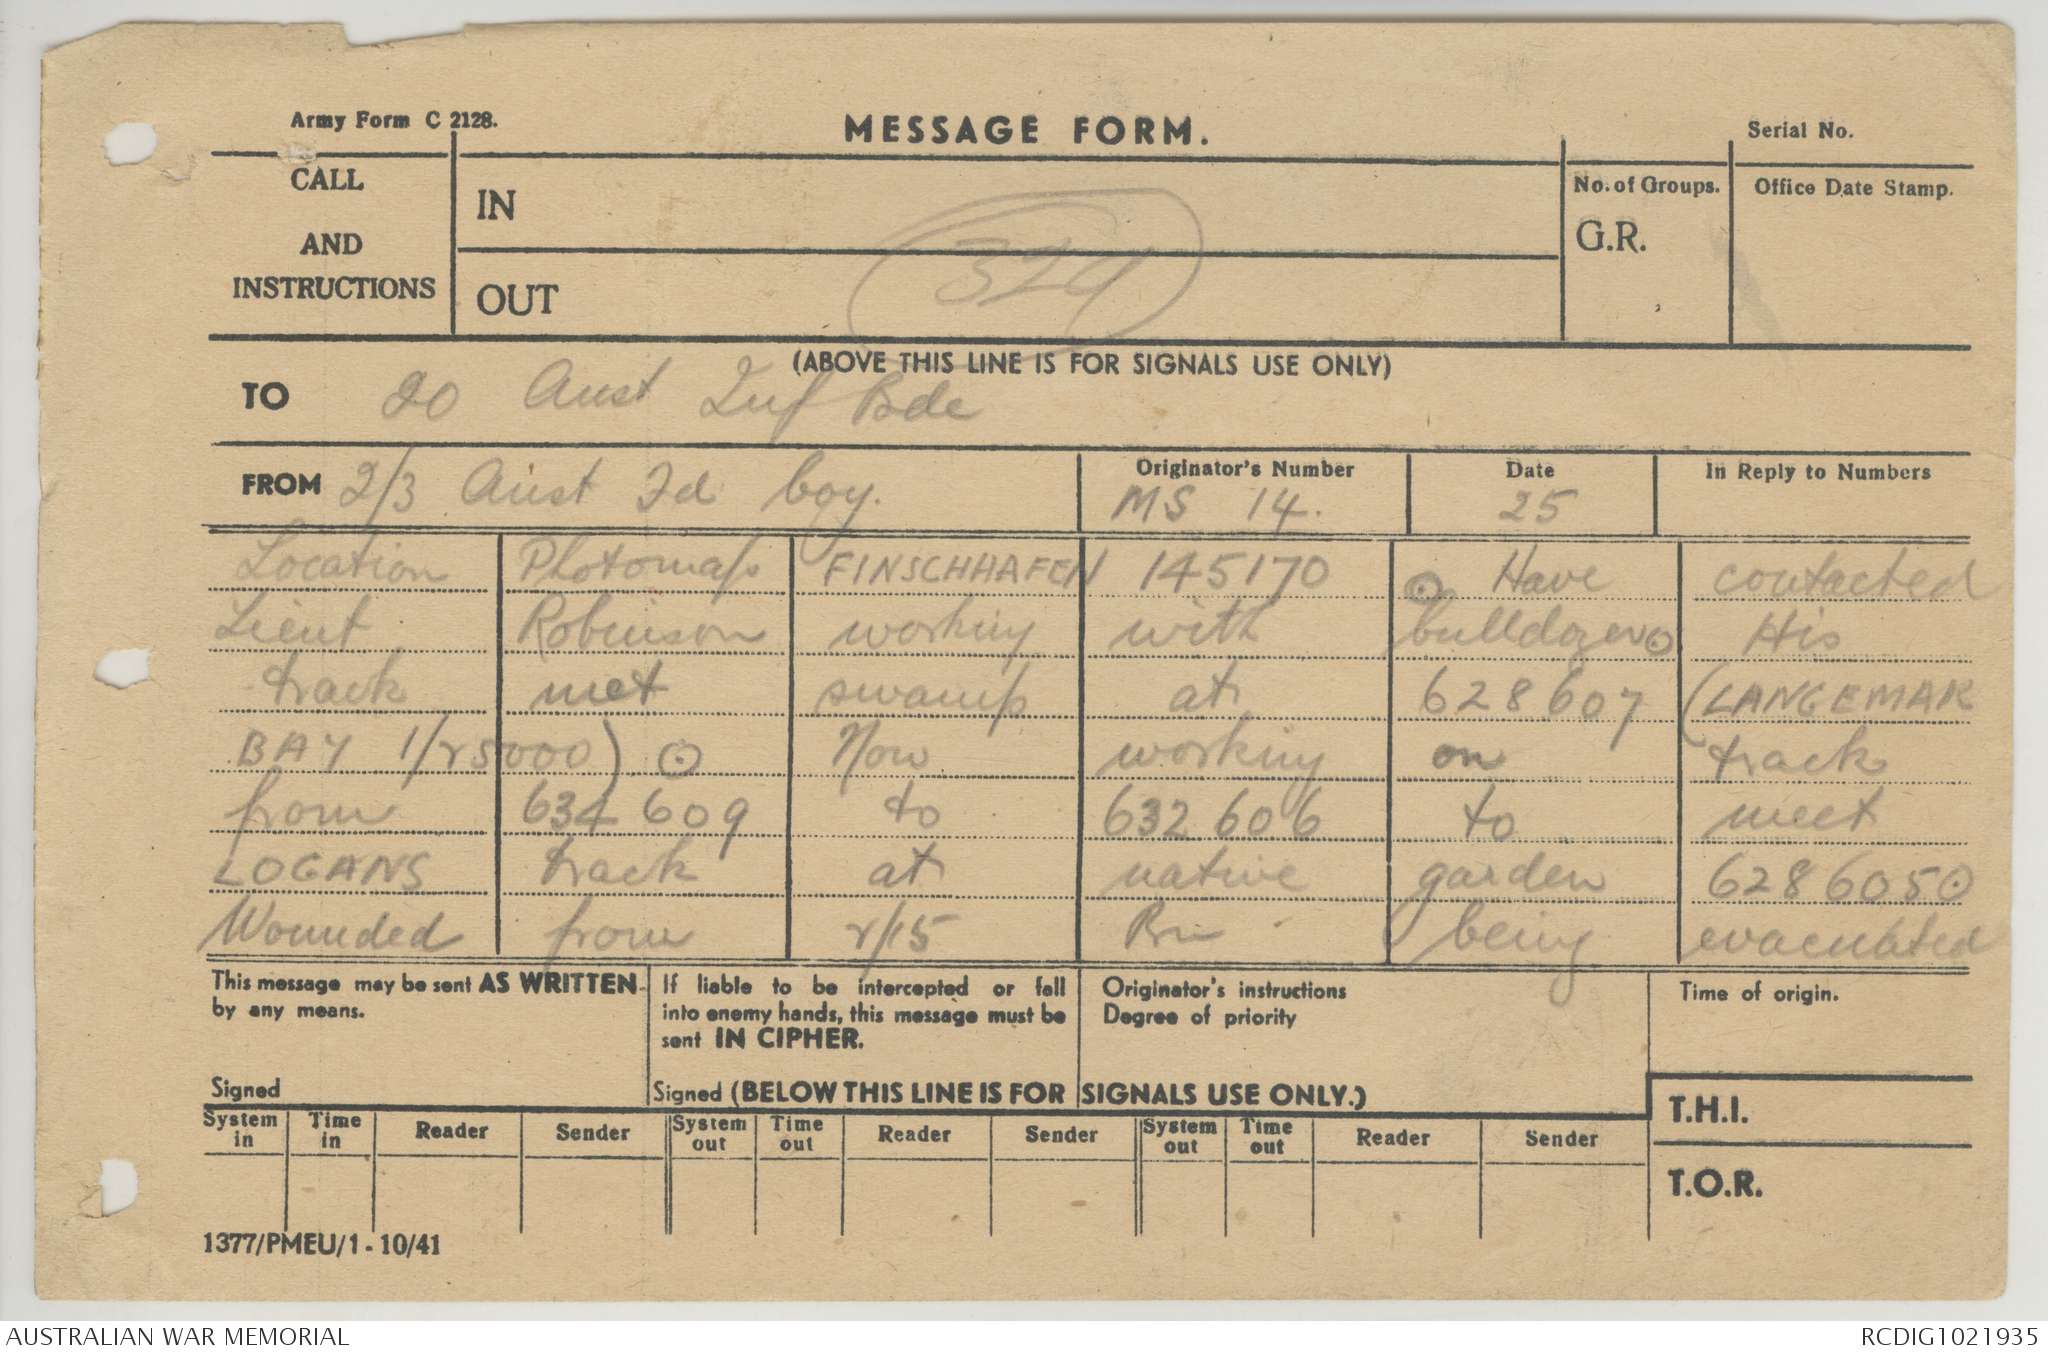 Army Form C 2128.
MESSAGE FORM.
Serial No.
CALL
AND
INSTRUCTIONS
IN
OUT
324
No. of Groups.
G.R.
Office Date Stamp.
(ABOVE THIS LINE IS FOR SIGNALS USE ONLY)
TO 20 Aust Inf Bde
FROM 2/3 Aust Fd Coy.
Originator's Number
MS 14.
Date
25
In Reply to Numbers
Location Photomap FINSCHHAFEN 145170 ⊙ Have contacted
Lieut Robinson working with bulldozer ⊙ His
track met swamp at 628607 (LANGEMAK
BAY 1/25000) ⊙ Now working on track
from 634609 to 632606 to meet
LOGANS track at native garden 628605 ⊙
Wounded from 2/15 Bn being evacuated
This message may be sent AS WRITTEN
by any means.
Signed
If liable to be intercepted or fall
into enemy hands, this message must be
sent IN CIPHER.
Signed (BELOW THIS LINE IS FOR SIGNALS USE ONLY.)
Originator's instructions
Degree of priority
Time of origin.
System in Time in Reader Sender System out Time out Reader Sender System out Time out Reader Sender
T.H.I.
T.O.R.
1377/PMEU/1 - 10/41
AUSTRALIAN WAR MEMORIAL
RCDIG1021935